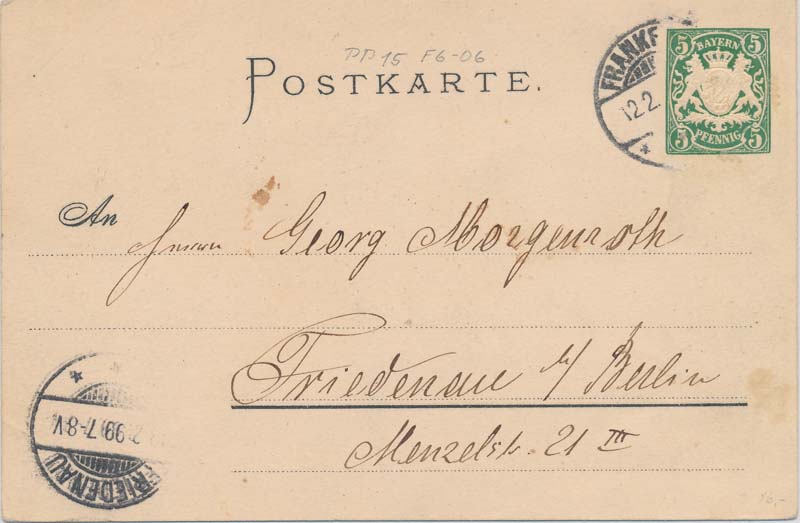 PP15 F6-06
POSTKARTE.
FRANKF
12.2.
5 BAYERN 5
5 PFENNIG 5
An
Herrn Georg Morgenroth
Friedenau b/ Berlin
Menzelstr. 21 III
2 99 7-8V
FRIEDENAU